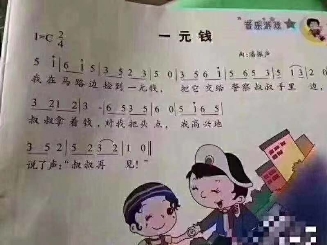 音乐游戏
1=C 2/4
一元钱
曲:潘振声
5 i | 6 i 5 | 3 5 2 3 | 5 0 | 3 5 6 i | 5 6 5 3 | 5 1 3 2 |
我在马路边捡到一元钱， 把它交给警察叔叔手里 边，
3 21 2 | 3 - | 6 5 3 5 | 6 0 | 5 i 6 5 |
叔叔拿着钱，对我把头点， 我高兴地
3 5 2 | 5 2 3 2 | 1 0 ‖
说了声:“叔叔再 见!”